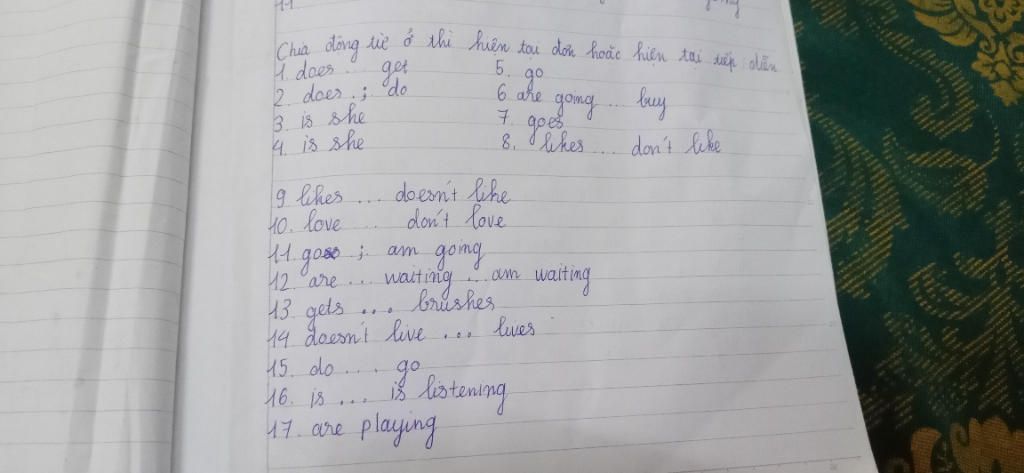 Chia động từ ở thì hiện tại đơn hoặc hiện tại tiếp diễn
1. does ... get
2. does . ; do
3. is she
4. is she
5. go
6 are going ... buy
7. goes
8. likes ... don't like
9. likes ... doesn't like
10. love ... don't love
11. go ; am going
12. are ... waiting ... am waiting
13. gets ... brushes
14 doesn't live ... lives
15. do ... go
16. is ... is listening
17. are playing